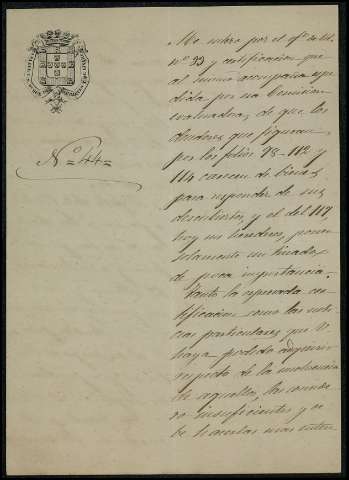 Nº=44=
Me entero por el of.º de Vd.
nº 33 y certificacion que
al mismo acompaña espe
dida por esa Comision
evaluadora, de que los
deudores que figuran
por los folios 98-112 y
114 carecen de bienes
para responder de sus
descubiertos, y el del 117,
hoy sus herederos, poseen
solamente un
de poca importancia.
Tanto la espresada cer
tificacion como las noti
cias particulares que V.
haya podido adquirir
respecto de la insolvencia
de aquellos, las conside
ro insuficientes y de
be hacerlas mas esten